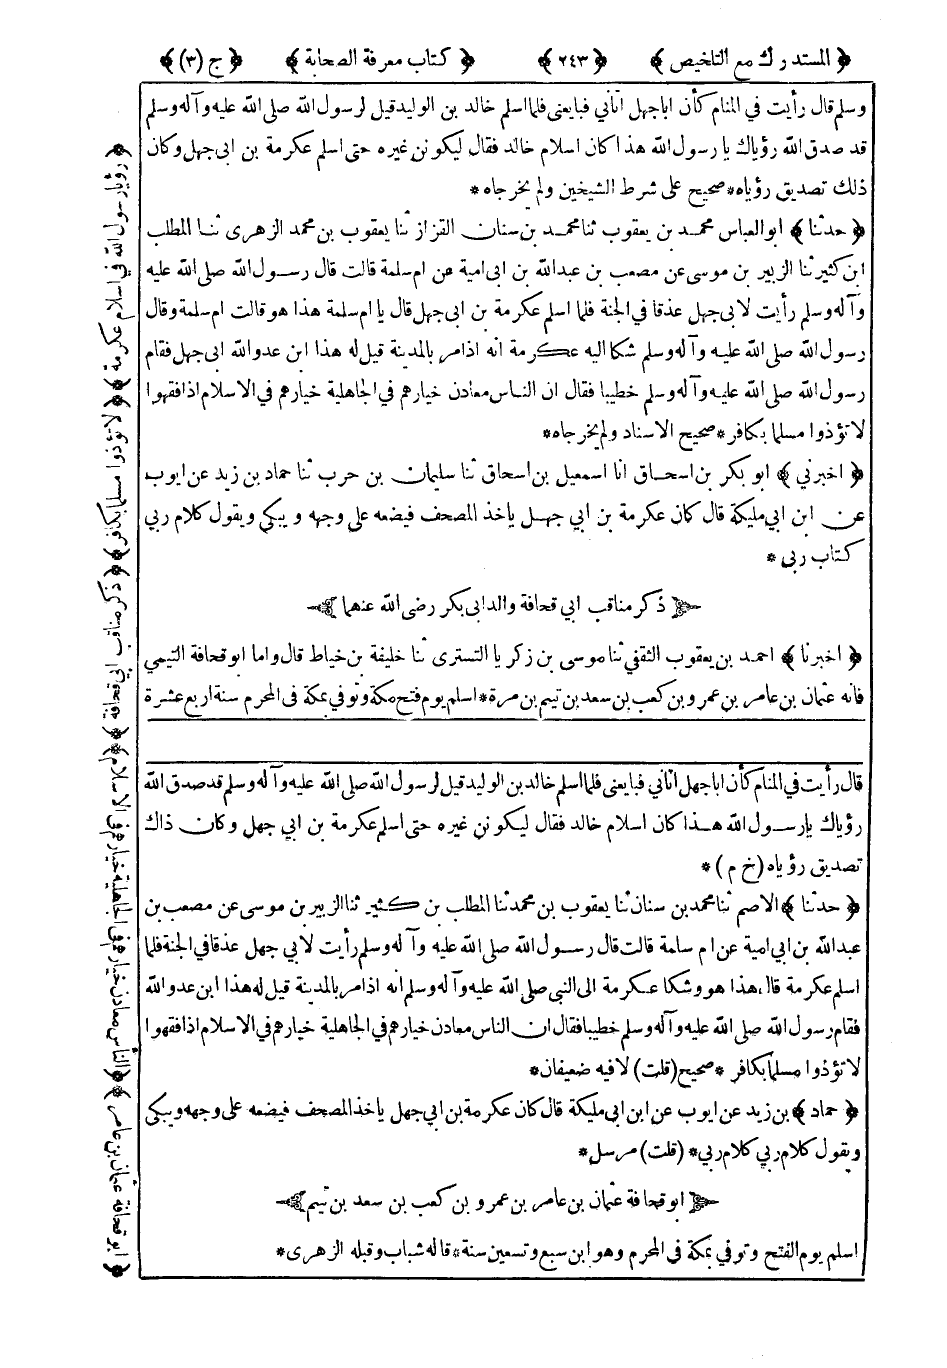 ﴿ المستدرك مع التلخيص ﴾ ﴿ ٢٤٣ ﴾ ﴿ كتاب معرفة الصحابة ﴾ ﴿ ج (٣) ﴾
وسلم قال رأيت في المنام كأن اباجهل اتاني فبايعني فلما اسلم خالد بن الوليد قيل لرسول الله صلى الله عليه وآله وسلم
قد صدق الله رؤياك يا رسول الله هذا كان اسلام خالد فقال ليكونن غيره حتى اسلم عكرمة بن ابى جهل وكان
ذلك تصديق رؤياه * صحيح على شرط الشيخين ولم يخرجاه *
﴿ حدثنا ﴾ ابو العباس محمد بن يعقوب ثنا محمد بن سنان القزاز ثنا يعقوب بن محمد الزهرى ثنا المطلب
ابن كثير ثنا الزبير بن موسى عن مصعب بن عبدالله بن ابى امية عن ام سلمة قالت قال رسول الله صلى الله عليه
وآله وسلم رأيت لابى جهل عذقا في الجنة فلما اسلم عكرمة بن ابى جهل قال يا ام سلمة هذا هو قالت ام سلمة وقال
رسول الله صلى الله عليه وآله وسلم شكا اليه عكرمة انه اذا مر بالمدينة قيل له هذا ابن عدو الله ابى جهل فقام
رسول الله صلى الله عليه وآله وسلم خطيبا فقال ان الناس معادن خيارهم في الجاهلية خيارهم في الاسلام اذا فقهوا
لا تؤذوا مسلما بكافر * صحيح الاسناد ولم يخرجاه *
﴿ اخبرني ﴾ ابو بكر بن اسحاق انا اسمعيل بن اسحاق ثنا سليمان بن حرب ثنا حماد بن زيد عن ايوب
عن ابن ابي مليكة قال كان عكرمة بن ابي جهل يأخذ المصحف فيضعه على وجهه ويبكي ويقول كلام ربي
كتاب ربى *
ذكر مناقب ابي قحافة والد ابى بكر رضى الله عنهما
﴿ اخبرنا ﴾ احمد بن يعقوب الثقفي ثنا موسى بن زكريا التسترى ثنا خليفة بن خياط قال واما ابو قحافة التيمي
فانه عثمان بن عامر بن عمرو بن كعب بن سعد بن تيم بن مرة * اسلم يوم فتح مكة وتوفي بمكة في المحرم سنة اربع عشرة
قال رأيت في المنام كأن اباجهل اتاني فبايعني فلما اسلم خالد بن الوليد قيل لرسول الله صلى الله عليه وآله وسلم قد صدق الله
رؤياك يا رسول الله هذا كان اسلام خالد فقال ليكونن غيره حتى اسلم عكرمة بن ابي جهل وكان ذاك
تصديق رؤياه (خ م) *
﴿ حدثنا ﴾ الاصم ثنا محمد بن سنان ثنا يعقوب بن محمد ثنا المطلب بن كثير ثنا الزبير بن موسى عن مصعب بن
عبدالله بن ابي امية عن ام سلمة قالت قال رسول الله صلى الله عليه وآله وسلم رأيت لابي جهل عذقا في الجنة فلما
اسلم عكرمة قال هذا هو وشكا عكرمة الى النبي صلى الله عليه وآله وسلم أنه اذا مر بالمدينة قيل له هذا ابن عدو الله
فقام رسول الله صلى الله عليه وآله وسلم خطيبا فقال ان الناس معادن خيارهم في الجاهلية خيارهم في الاسلام اذا فقهوا
لا تؤذوا مسلما بكافر * صحيح (قلت) لا فيه ضعيفان *
﴿ حماد ﴾ بن زيد عن ايوب عن ابن ابى مليكة قال كان عكرمة بن ابي جهل يأخذ المصحف فيضعه على وجهه ويبكى
ويقول كلام ربي كلام ربي * (قلت) مرسل *
ابو قحافة عثمان بن عامر بن عمرو بن كعب بن سعد بن تيم
اسلم يوم الفتح وتوفي بمكة في المحرم وهو ابن سبع وتسعين سنة * قاله شباب وقبله الزهرى *
﴿ رؤيا رسول الله في اسلام عكرمة ﴾ ﴿ لا تؤذوا مسلما بكافر ﴾ ﴿ ذكر مناقب ابي قحافة ﴾ ﴿ الناس معادن خيارهم في الجاهلية خيارهم في الاسلام ﴾ ﴿ ابو قحافة عثمان بن عامر ﴾